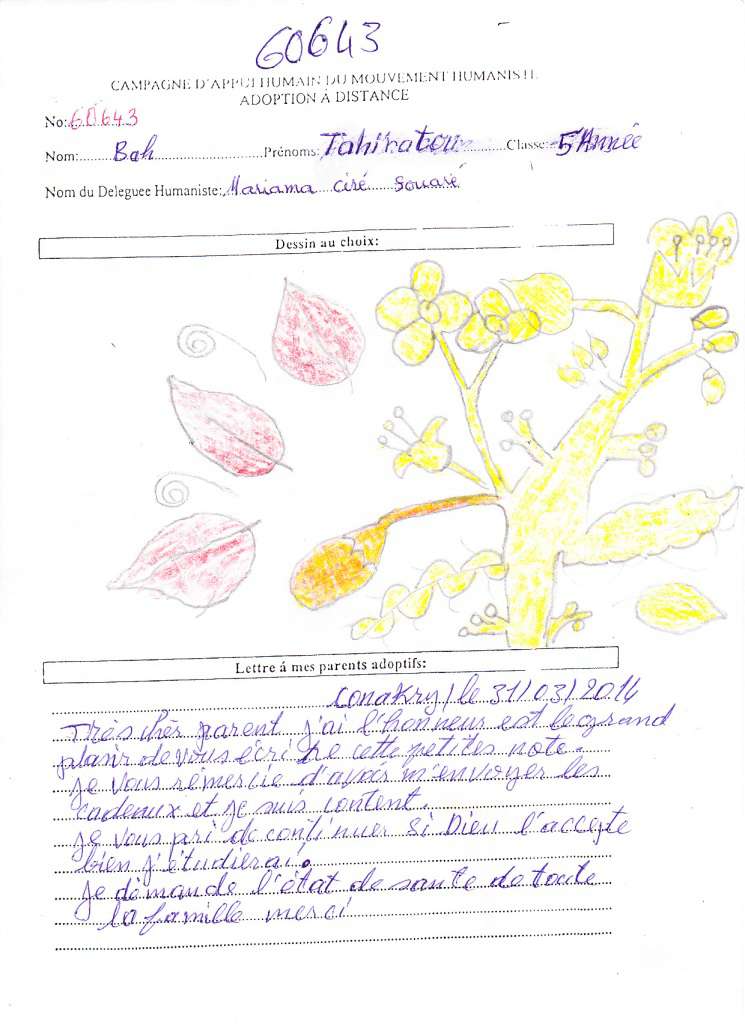 60643
CAMPAGNE D'APPUI HUMAIN DU MOUVEMENT HUMANISTE
ADOPTION À DISTANCE
No: 60643
Nom: Bah Prénoms: Tahiratou Classe: 5 Année
Nom du Deleguee Humaniste: Mariama ciré Souaré
Dessin au choix:
Lettre á mes parents adoptifs:
conakry, le 31/03/2014
Très chèr parent j'ai l'honneur est le grand
plaisir de vous écri re cette petites note.
Je vous rémercie d'avoir m'envoyer les
cadeaux et je suis content.
Je vous pri de continuer si Dieu l'accepte
bien j'étudierai.
Je démande l'état de sante de toute
la famille merci